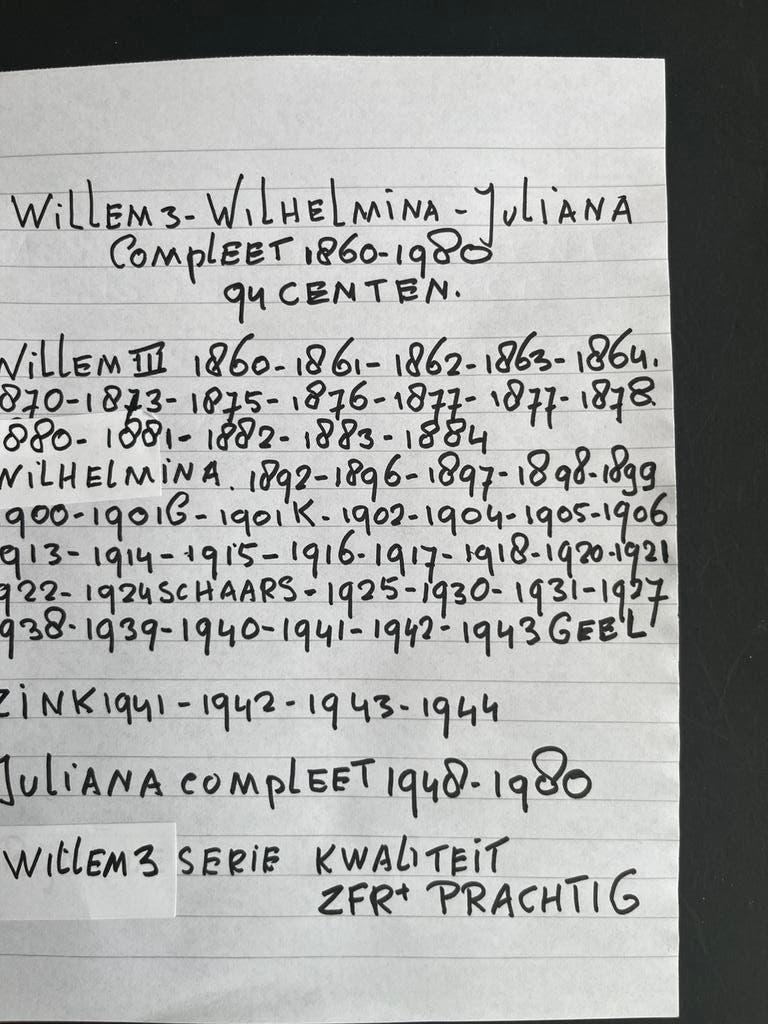 WILLEM 3 - WILHELMINA - JULIANA
COMPLEET 1860-1980
94 CENTEN.
WILLEM III 1860-1861-1862-1863-1864.
870-1873-1875-1876-1877-1877-1878.
1880-1881-1882-1883-1884
WILHELMINA. 1892-1896-1897-1898-1899
1900-1901G-1901K-1902-1904-1905-1906
913-1914-1915-1916-1917-1918-1920-1921
922-1924 SCHAARS-1925-1930-1931-1937
938-1939-1940-1941-1942-1943 GEEL
ZINK 1941-1942-1943-1944
JULIANA COMPLEET 1948-1980
WILLEM 3 SERIE KWALITEIT
ZFR+ PRACHTIG